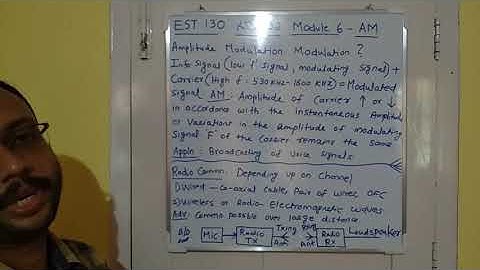 EST 130 Module 6 - AM
Amplitude Modulation Modulation?
Info signal (low f signal, modulating signal) +
Carrier (High f: 530KHz-1600 KHz) = Modulated
signal AM: Amplitude of Carrier ↑ or ↓
in accordance with the instantaneous Amplitude
or Variations in the amplitude of modulating
signal F of the carrier remains the same
Appln: Broadcasting of Voice signals
Radio Commn: Depending upon on Channel
1) Wired - Co-axial Cables Pair of wires OFC
2) Wireless or Radio - Electromagnetic waves
Adv Commn possible over large distance
Mic → Radio TX Ant Ant Radio RX Loudspeaker